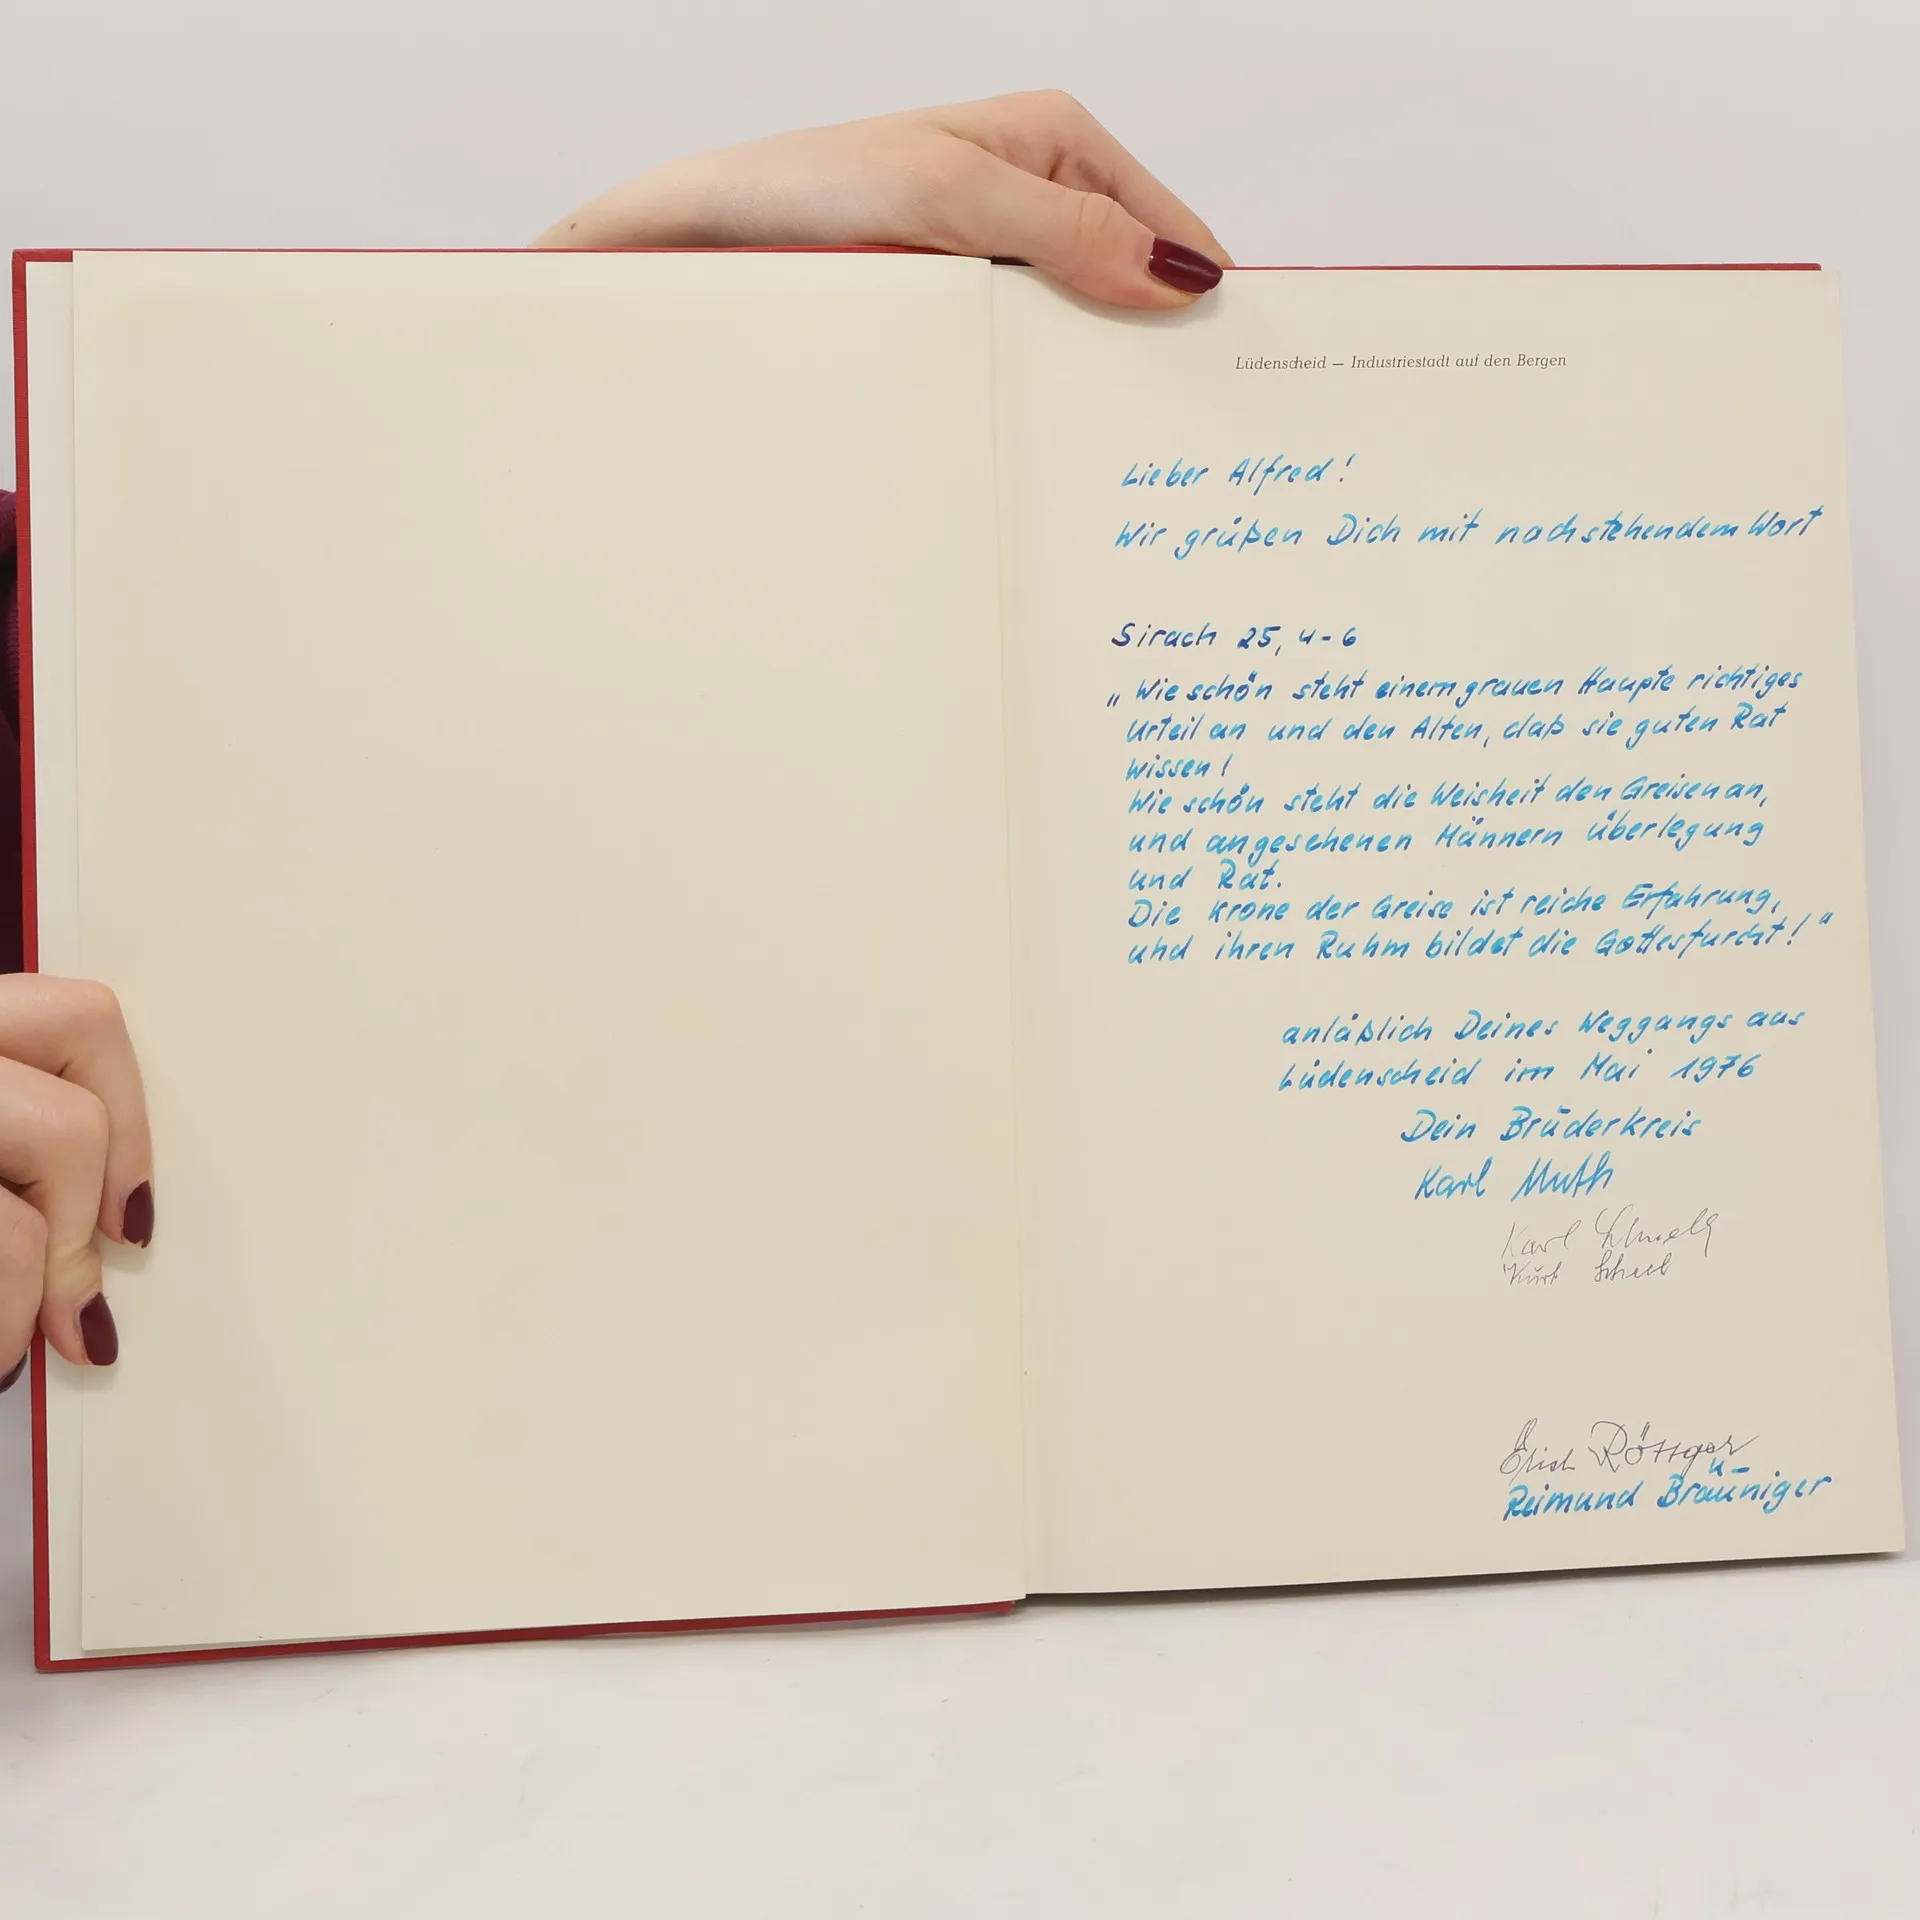 Lüdenscheid — Industriestadt auf den Bergen
Lieber Alfred!
Wir grüßen Dich mit nachstehendem Wort
Sirach 25, 4-6
„Wie schön steht einem grauen Haupte richtiges
Urteil an und den Alten, daß sie guten Rat
wissen!
Wie schön steht die Weisheit den Greisen an,
und angesehenen Männern Überlegung
und Rat.
Die Krone der Greise ist reiche Erfahrung,
und ihren Ruhm bildet die Gottesfurcht!"
anläßlich Deines Weggangs aus
Lüdenscheid im Mai 1976
Dein Brüderkreis
Karl Muth
Karl
Kurt
Erich Röttger
Reimund Bräuniger